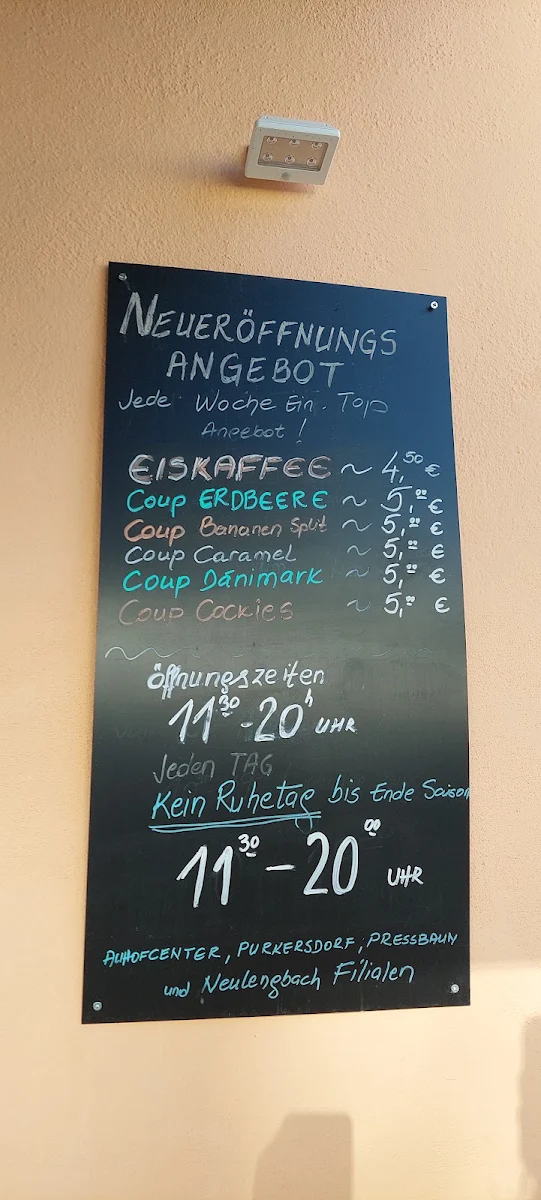 NEUERÖFFNUNGS
ANGEBOT
Jede Woche Ein. Top
Angebot!
EISKAFFEE ~ 4,50 €
Coup ERDBEERE ~ 5,00 €
Coup Bananen Split ~ 5,00 €
Coup Caramel ~ 5,00 €
Coup Dänimark ~ 5,00 €
Coup Cockies ~ 5,00 €
öffnungszeiten
11 30 - 20 h UHR
Jeden TAG
Kein Ruhetag bis Ende Saison
11 30 - 20 00 UHR
AUHOFCENTER, PURKERSDORF, PRESSBAUM
und Neulengbach Filialen